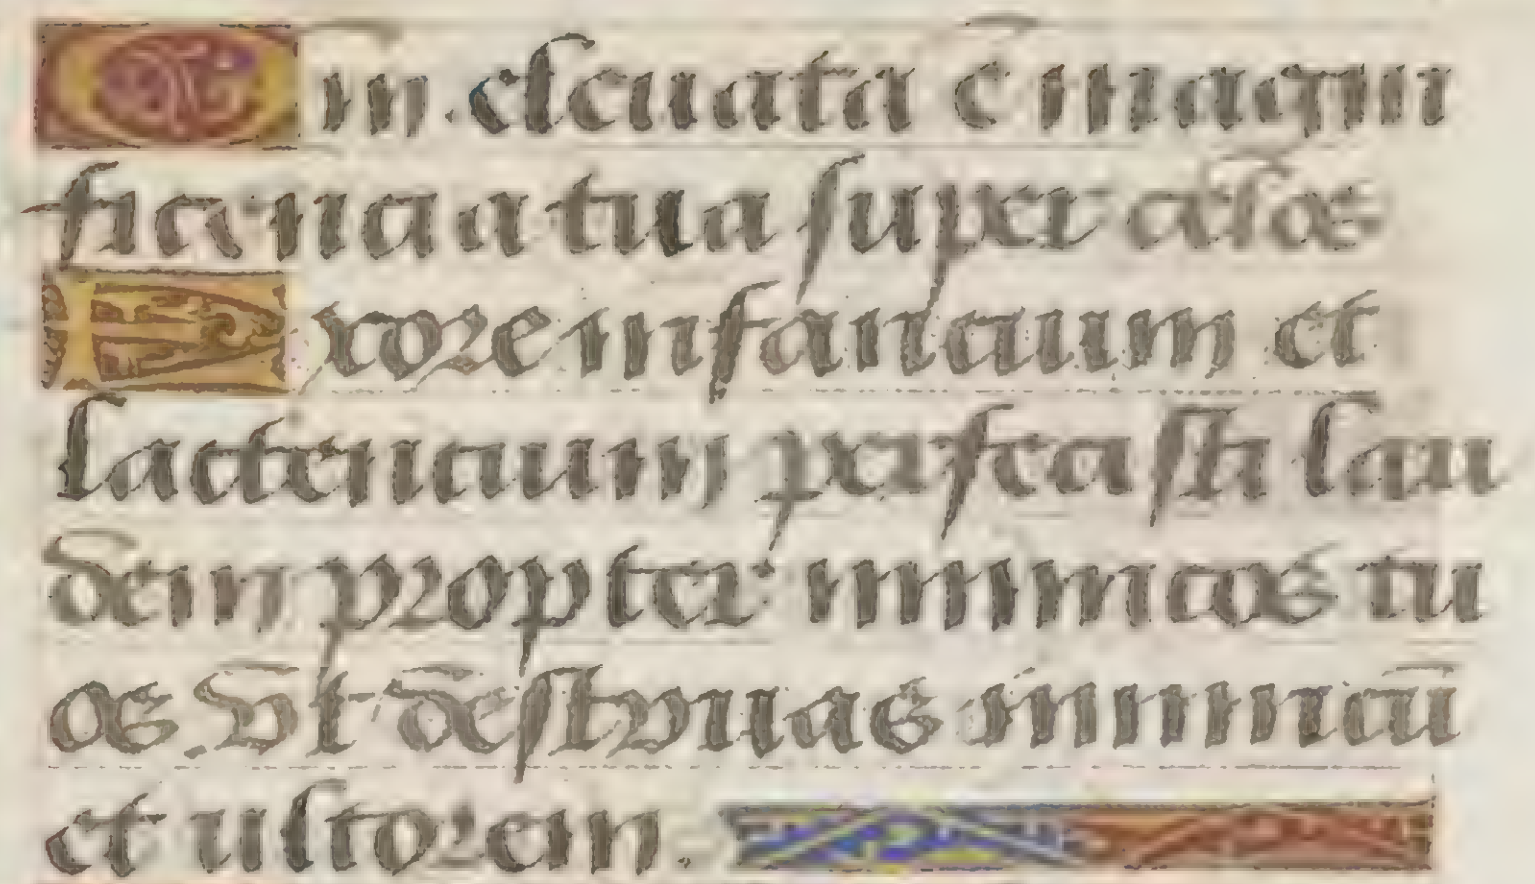 Qm̄ eleuata ē magni
ficencia tua super celos
Ex ore infancium et
lactencium perfecisti lau
dem propter inimicos tu
os. Vt destruas inimicū
et ultorem.